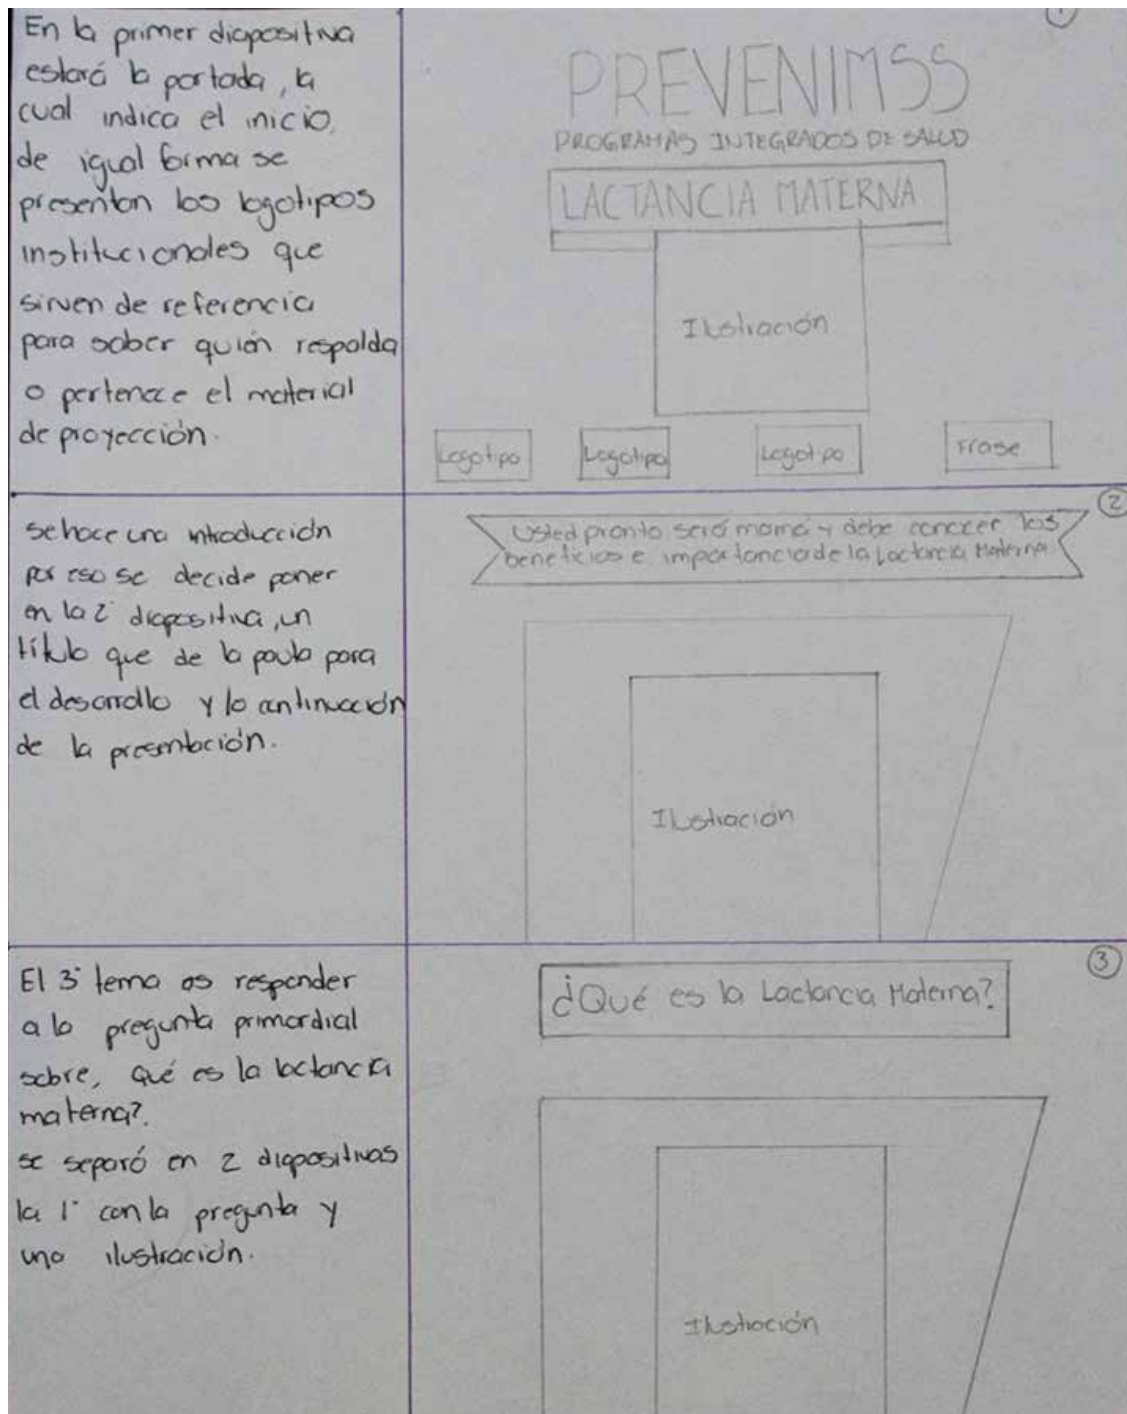 En la primer diapositiva
estará la portada, la
cual indica el inicio,
de igual forma se
presentan los logotipos
institucionales que
sirven de referencia
para saber quién respalda
o pertenece el material
de proyección.
1
PREVENIMSS
PROGRAMAS INTEGRADOS DE SALUD
LACTANCIA MATERNA
Ilustración
Logotipo
Logotipo
Logotipo
Frase
se hace una introducción
por eso se decide poner
en la 2° diapositiva, un
título que de la pauta para
el desarrollo y la continuación
de la presentación.
2
Usted pronto será mamá y debe conocer los
beneficios e importancia de la Lactancia Materna
Ilustración
El 3° tema es responder
a la pregunta primordial
sobre, Qué es la lactancia
materna?.
se separó en 2 diapositivas
la 1° con la pregunta y
una ilustración.
3
¿Qué es la Lactancia Materna?
Ilustración